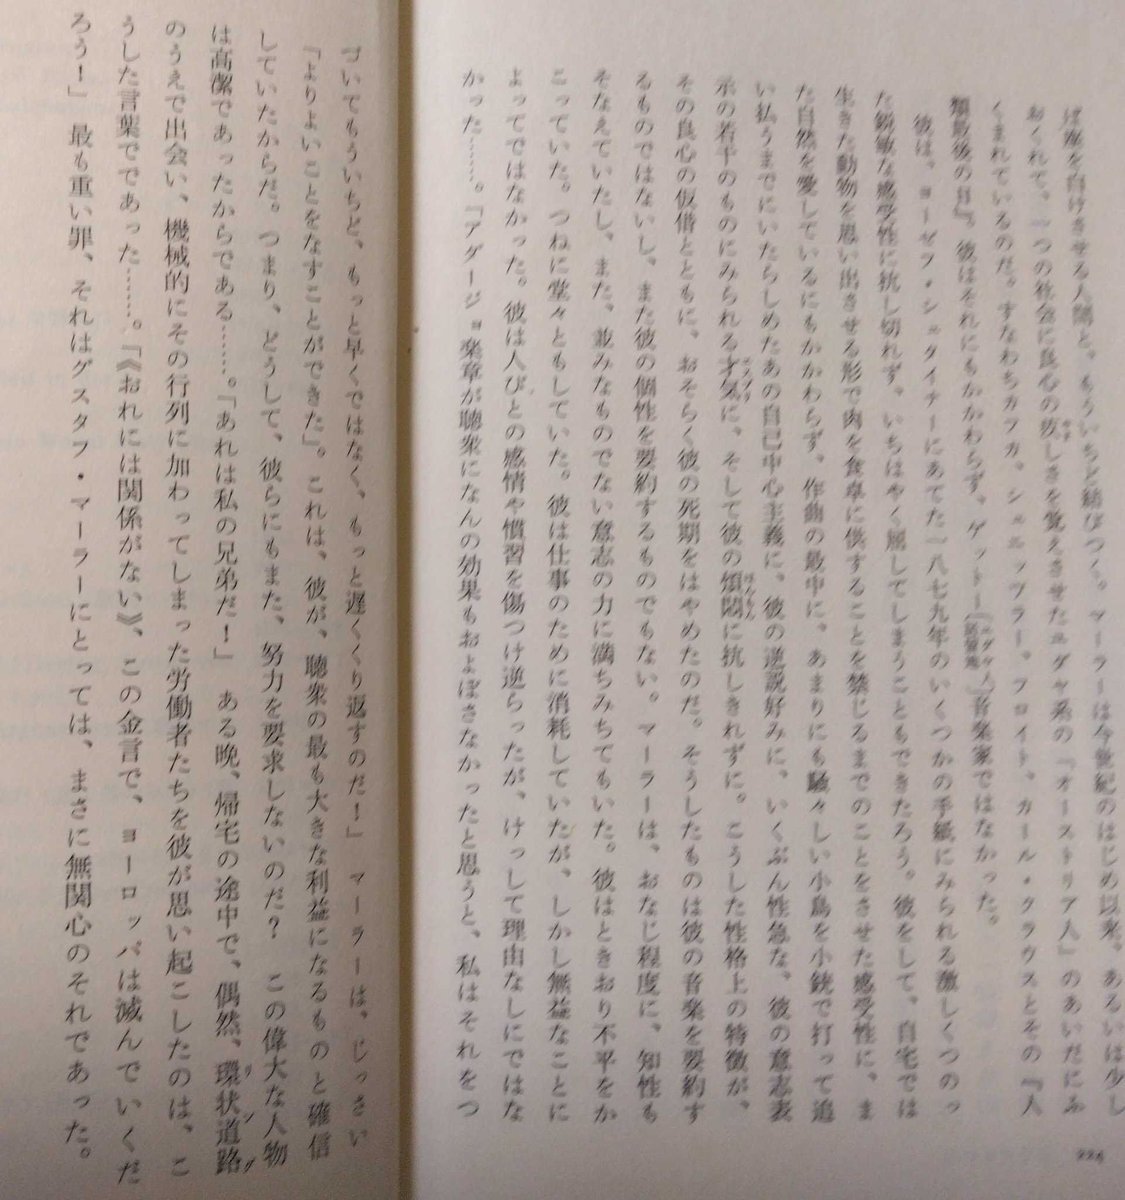 ば座を白けさせる人間と、もういちど結びつく。マーラーは今世紀のはじめ以来、あるいは少し
おくれて、一つの社会に良心の疚しさを覚えさせたユダヤ系の『オーストリア人』のあいだにふ
くまれているのだ。すなわちカフカ、シュニッツラー、フロイト、カール・クラウスとその『人
類最後の日』。彼はそれにもかかわらず、ゲットー〔ユダヤ人居留地〕音楽家ではなかった。
彼は、ヨーゼフ・シュタイナーにあてた一八七九年のいくつかの手紙にみられる激しくつのっ
た鋭敏な感受性に抗し切れず、いちはやく屈してしまうこともできたろう。彼をして、自宅では
生きた動物を思い出させる形で肉を食卓に供することを禁じるまでのことをさせた感受性に、ま
た自然を愛しているにもかかわらず、作曲の最中に、あまりにも騒々しい小鳥を小銃で打って追
い払うまでにいたらしめたあの自己中心主義に、彼の逆説好みに、いくぶん性急な、彼の意志表
示の若干のものにみられる才気に、そして彼の煩悶に抗しきれずに。こうした性格上の特徴が、
その良心の仮借とともに、おそらく彼の死期をはやめたのだ。そうしたものは彼の音楽を要約す
るものではないし、また彼の個性を要約するものでもない。マーラーは、おなじ程度に、知性も
そなえていたし、また、並みなものでない意志の力に満ちみちてもいた。彼はときおり不平をか
こっていた。つねに堂々ともしていた。彼は仕事のために消耗していたが、しかし無益なことに
よってではなかった。彼は人びとの感情や慣習を傷つけ逆らったが、けっして理由なしにではな
かった……。「アダージョ楽章が聴衆になんの効果もおよぼさなかったと思うと、私はそれをつ
224
づいてもういちど、もっと早くではなく、もっと遅くくり返すのだ！」　マーラーは、じっさい
「よりよいことをなすことができた」。これは、彼が、聴衆の最も大きな利益になるものと確信
していたからだ。つまり、どうして、彼らにもまた、努力を要求しないのだ？　この偉大な人物
は高潔であったからである……。「あれは私の兄弟だ！」　ある晩、帰宅の途中で、偶然、環状道路
のうえで出会い、機械的にその行列に加わってしまった労働者たちを彼が思い起こしたのは、こ
うした言葉でであった……。「《おれには関係がない》、この金言で、ヨーロッパは滅んでいくだ
ろう！」　最も重い罪、それはグスタフ・マーラーにとっては、まさに無関心のそれであった。